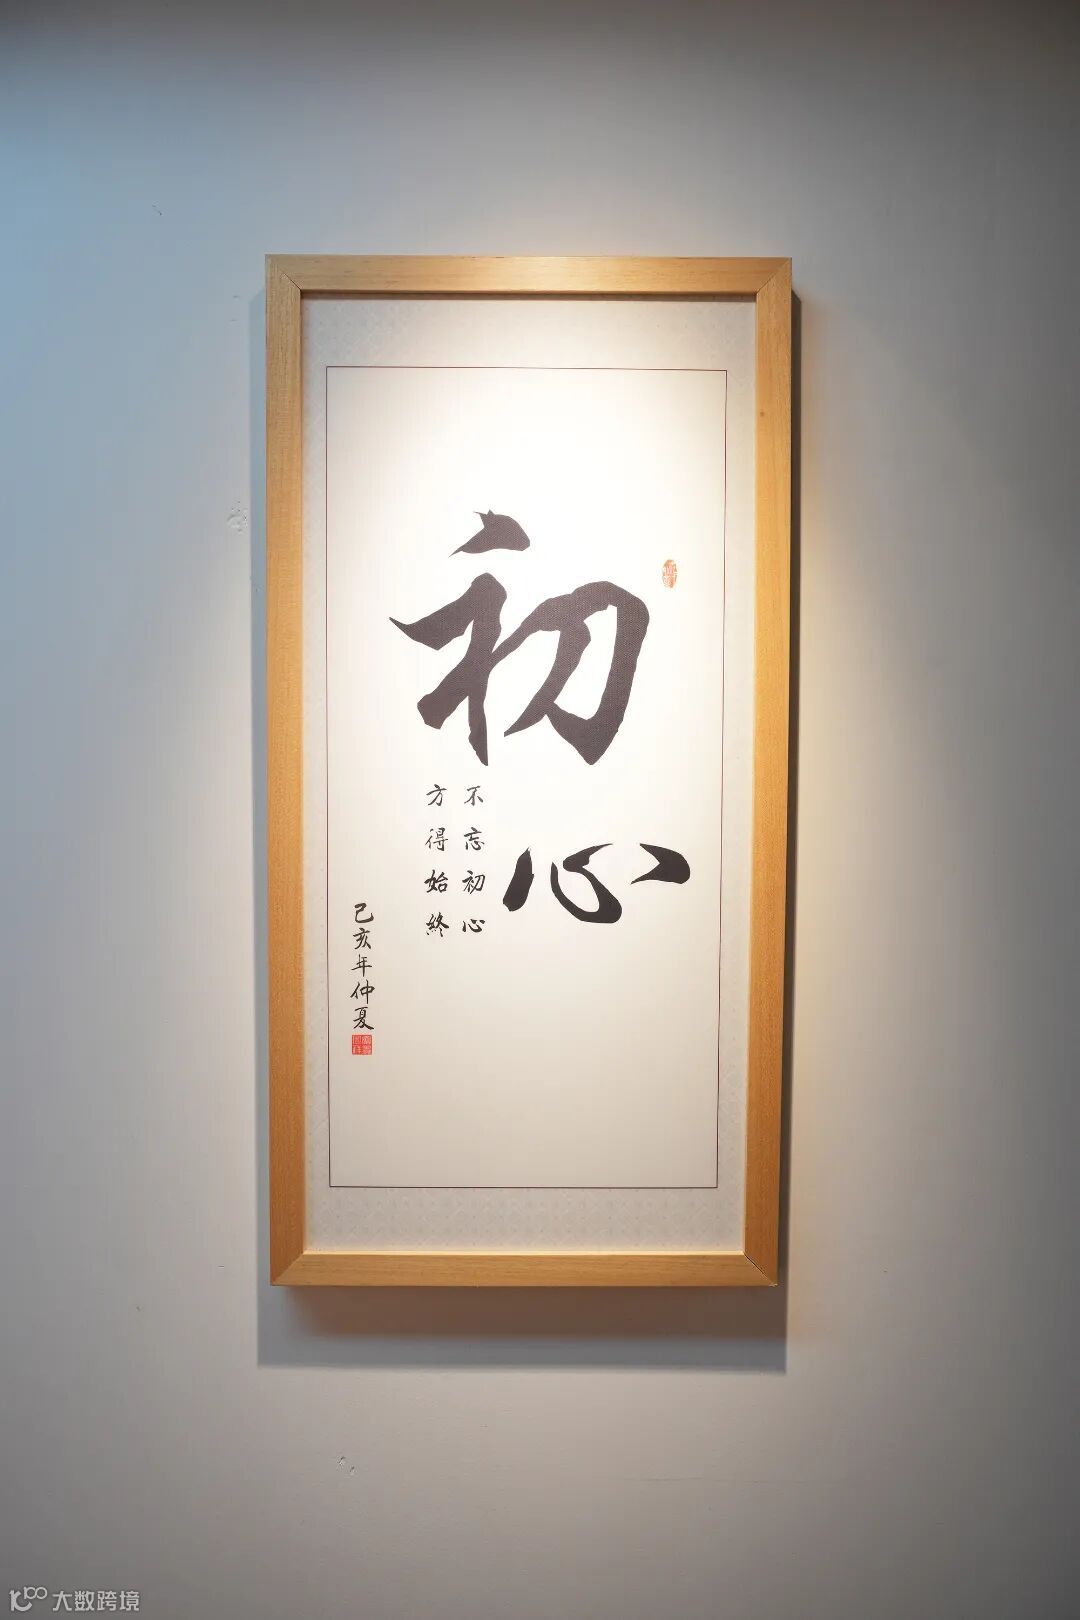 初心
不忘初心
方得始終
己亥年仲夏
大数跨境